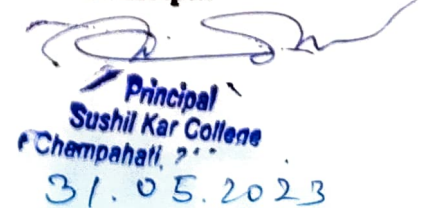 Principal
Sushil Kar College
Champahati,
31.05.2023